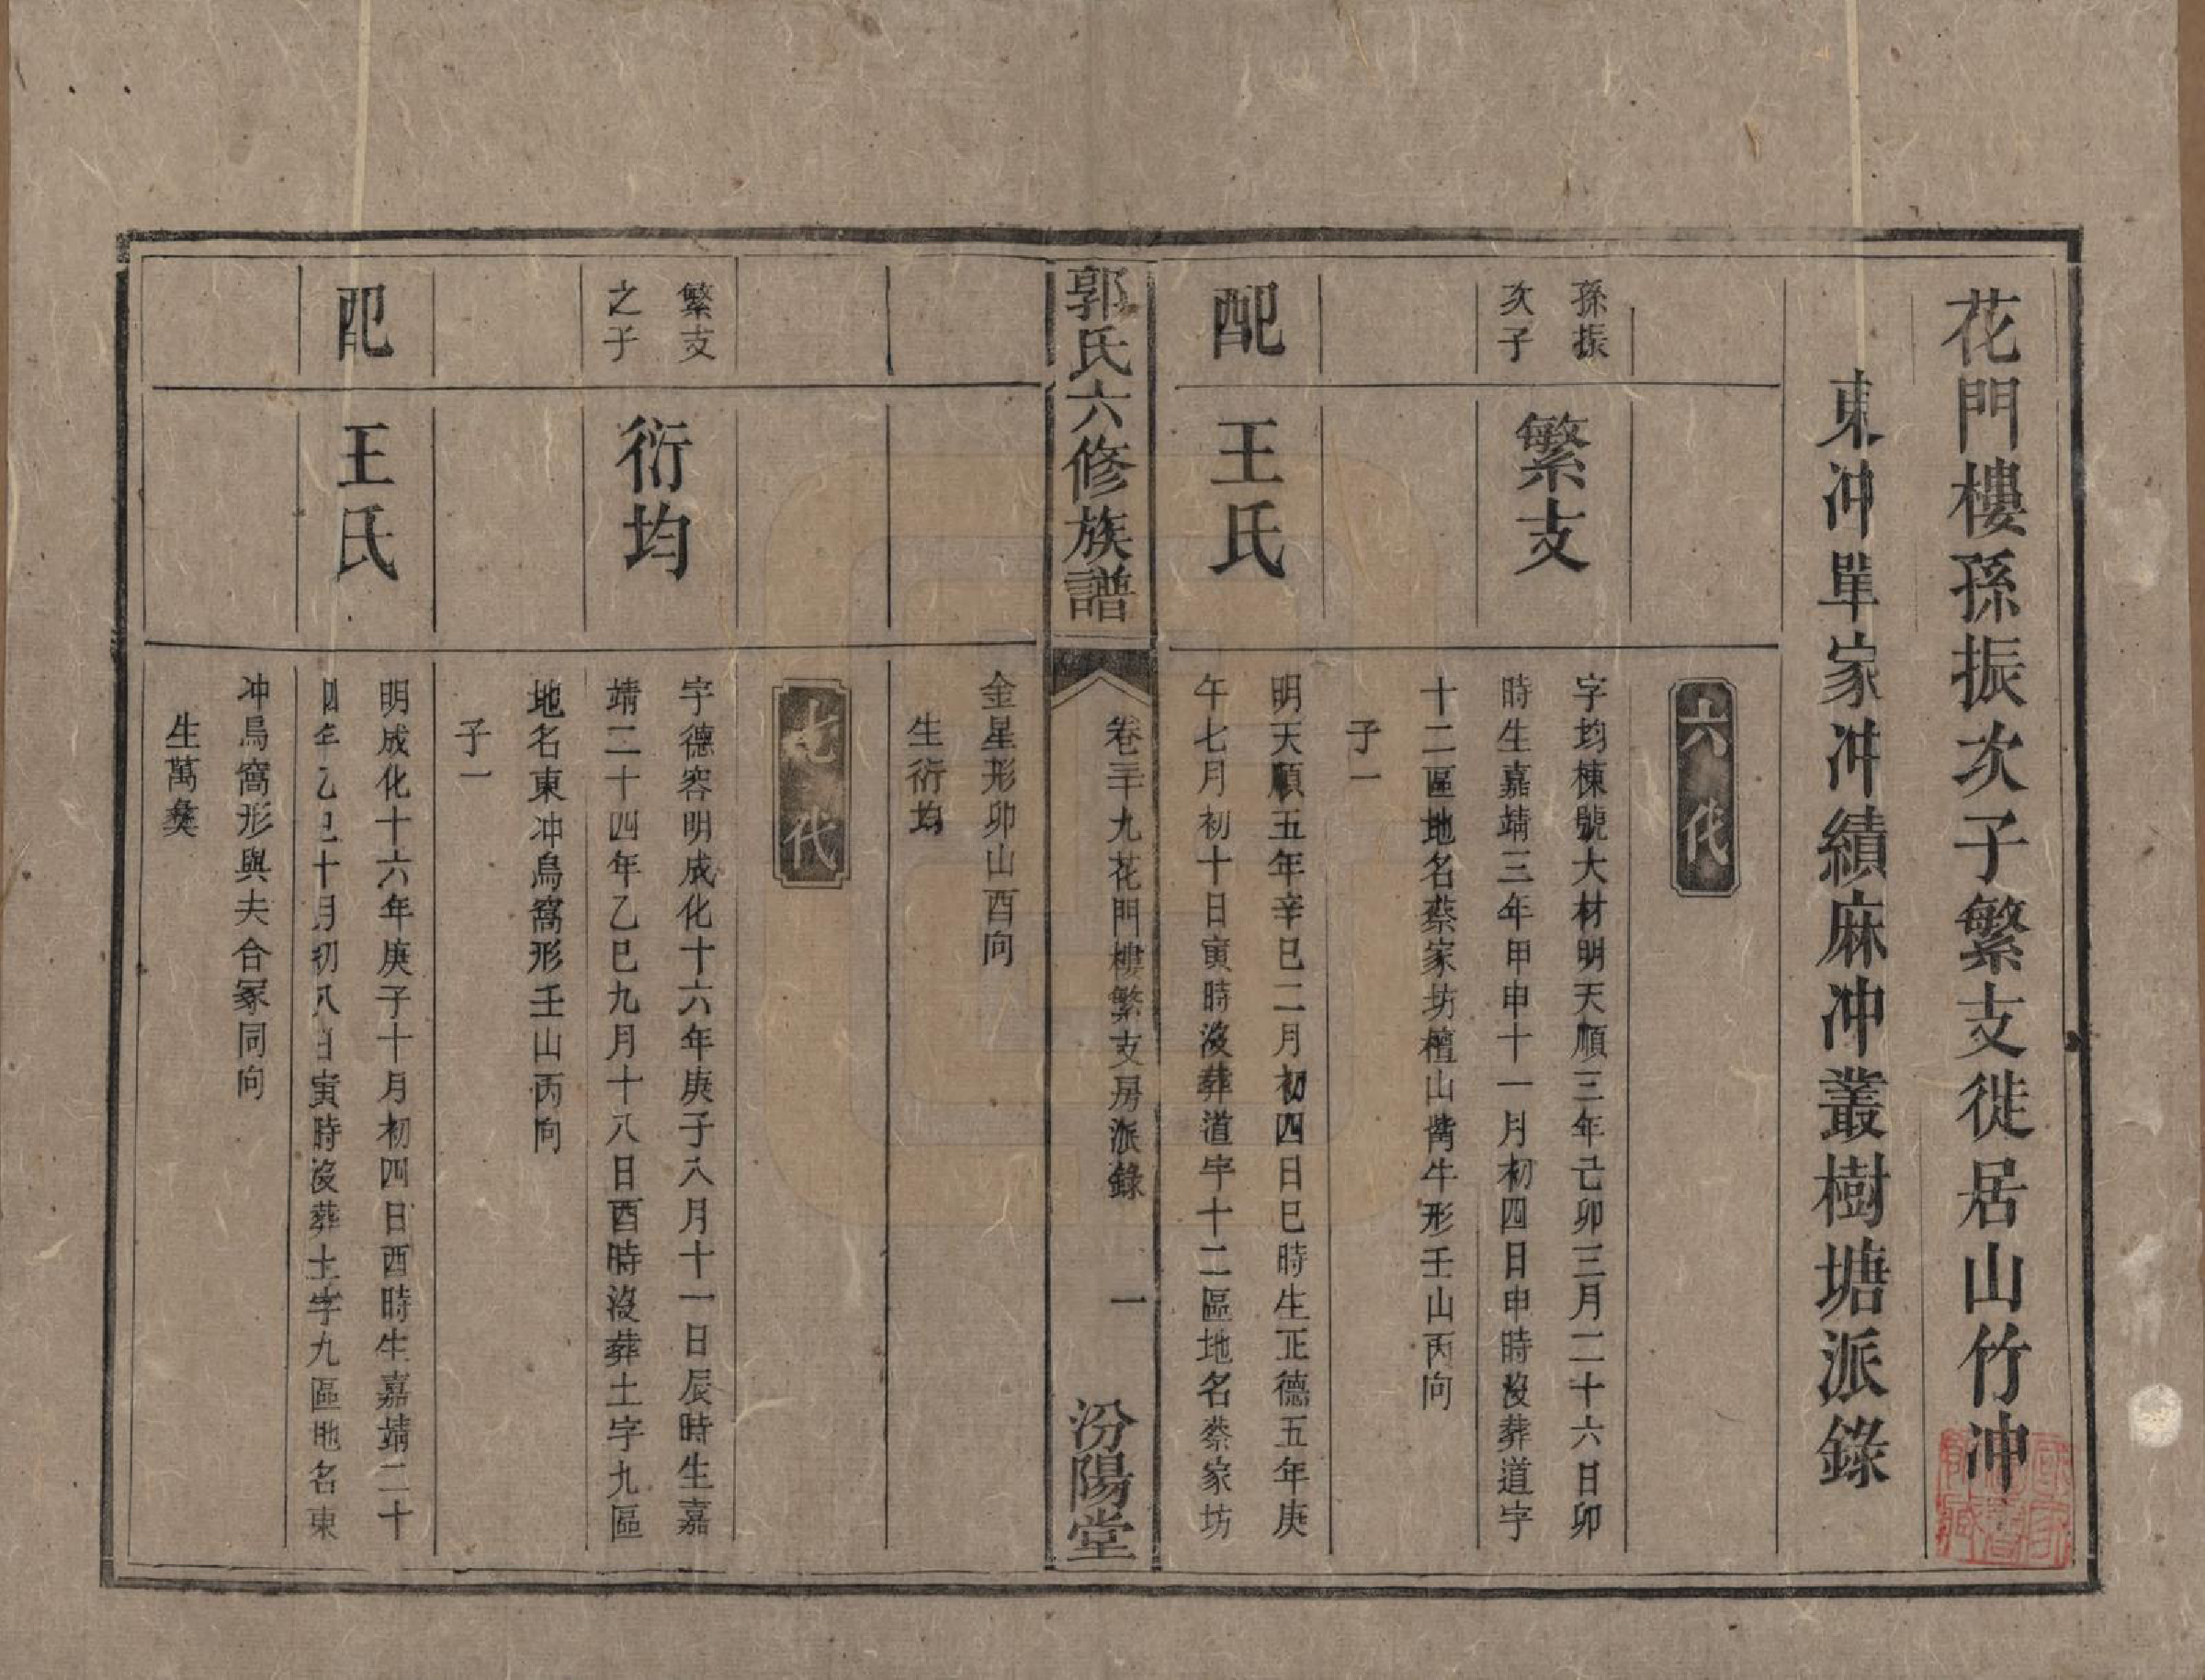 花門樓孫振次子繁支徙居山竹冲
東冲單家冲績麻冲叢樹塘派錄
六代
孫振
次子
繁支
字均棟號大材明天順三年己卯三月二十六日卯
時生嘉靖三年甲申十一月初四日申時沒葬道字
十二區地名蔡家坊檀山觜牛形壬山丙向
子一
配
王氏
明天順五年辛巳二月初四日巳時生正德五年庚
午七月初十日寅時沒葬道字十二區地名蔡家坊
郭氏六修族譜
卷三十九花門樓繁支房派錄
一
汾陽堂
金星形卯山酉向
生衍均
七代
繁支
之子
衍均
字德容明成化十六年庚子八月十一日辰時生嘉
靖二十四年乙巳九月十八日酉時沒葬土字九區
地名東冲鳥窩形壬山丙向
子一
配
王氏
明成化十六年庚子十月初四日酉時生嘉靖二十
四年乙巳十月初八日寅時沒葬土字九區地名東
冲鳥窩形與夫合冢同向
生萬彝